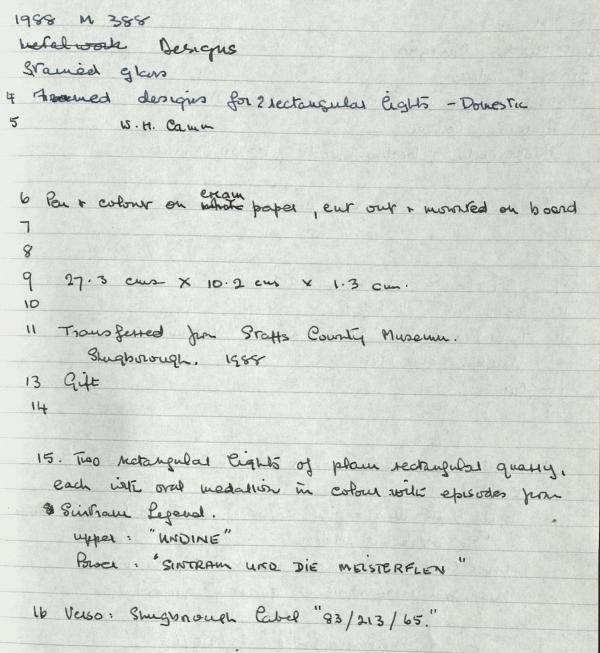 1988 M 388
Metalwork Designs
Stained glass
4 Framed designs for 2 rectangular lights - Domestic
5 W.H. Camm
6 Pen & colour on cream paper, cut out & mounted on board
7
8
9 27.3 cms x 10.2 cms x 1.3 cm.
10
11 Transferred from Staffs County Museum.
Shugborough. 1988
13 Gift
14
15. Two rectangular lights of plain rectangular quarry,
each with oval medallion in colour with episodes from
Sintram Legend.
upper : "UNDINE"
lower : "SINTRAM UND DIE MEISTERFLEN"
16 Verso: Shugborough label "83/213/65."